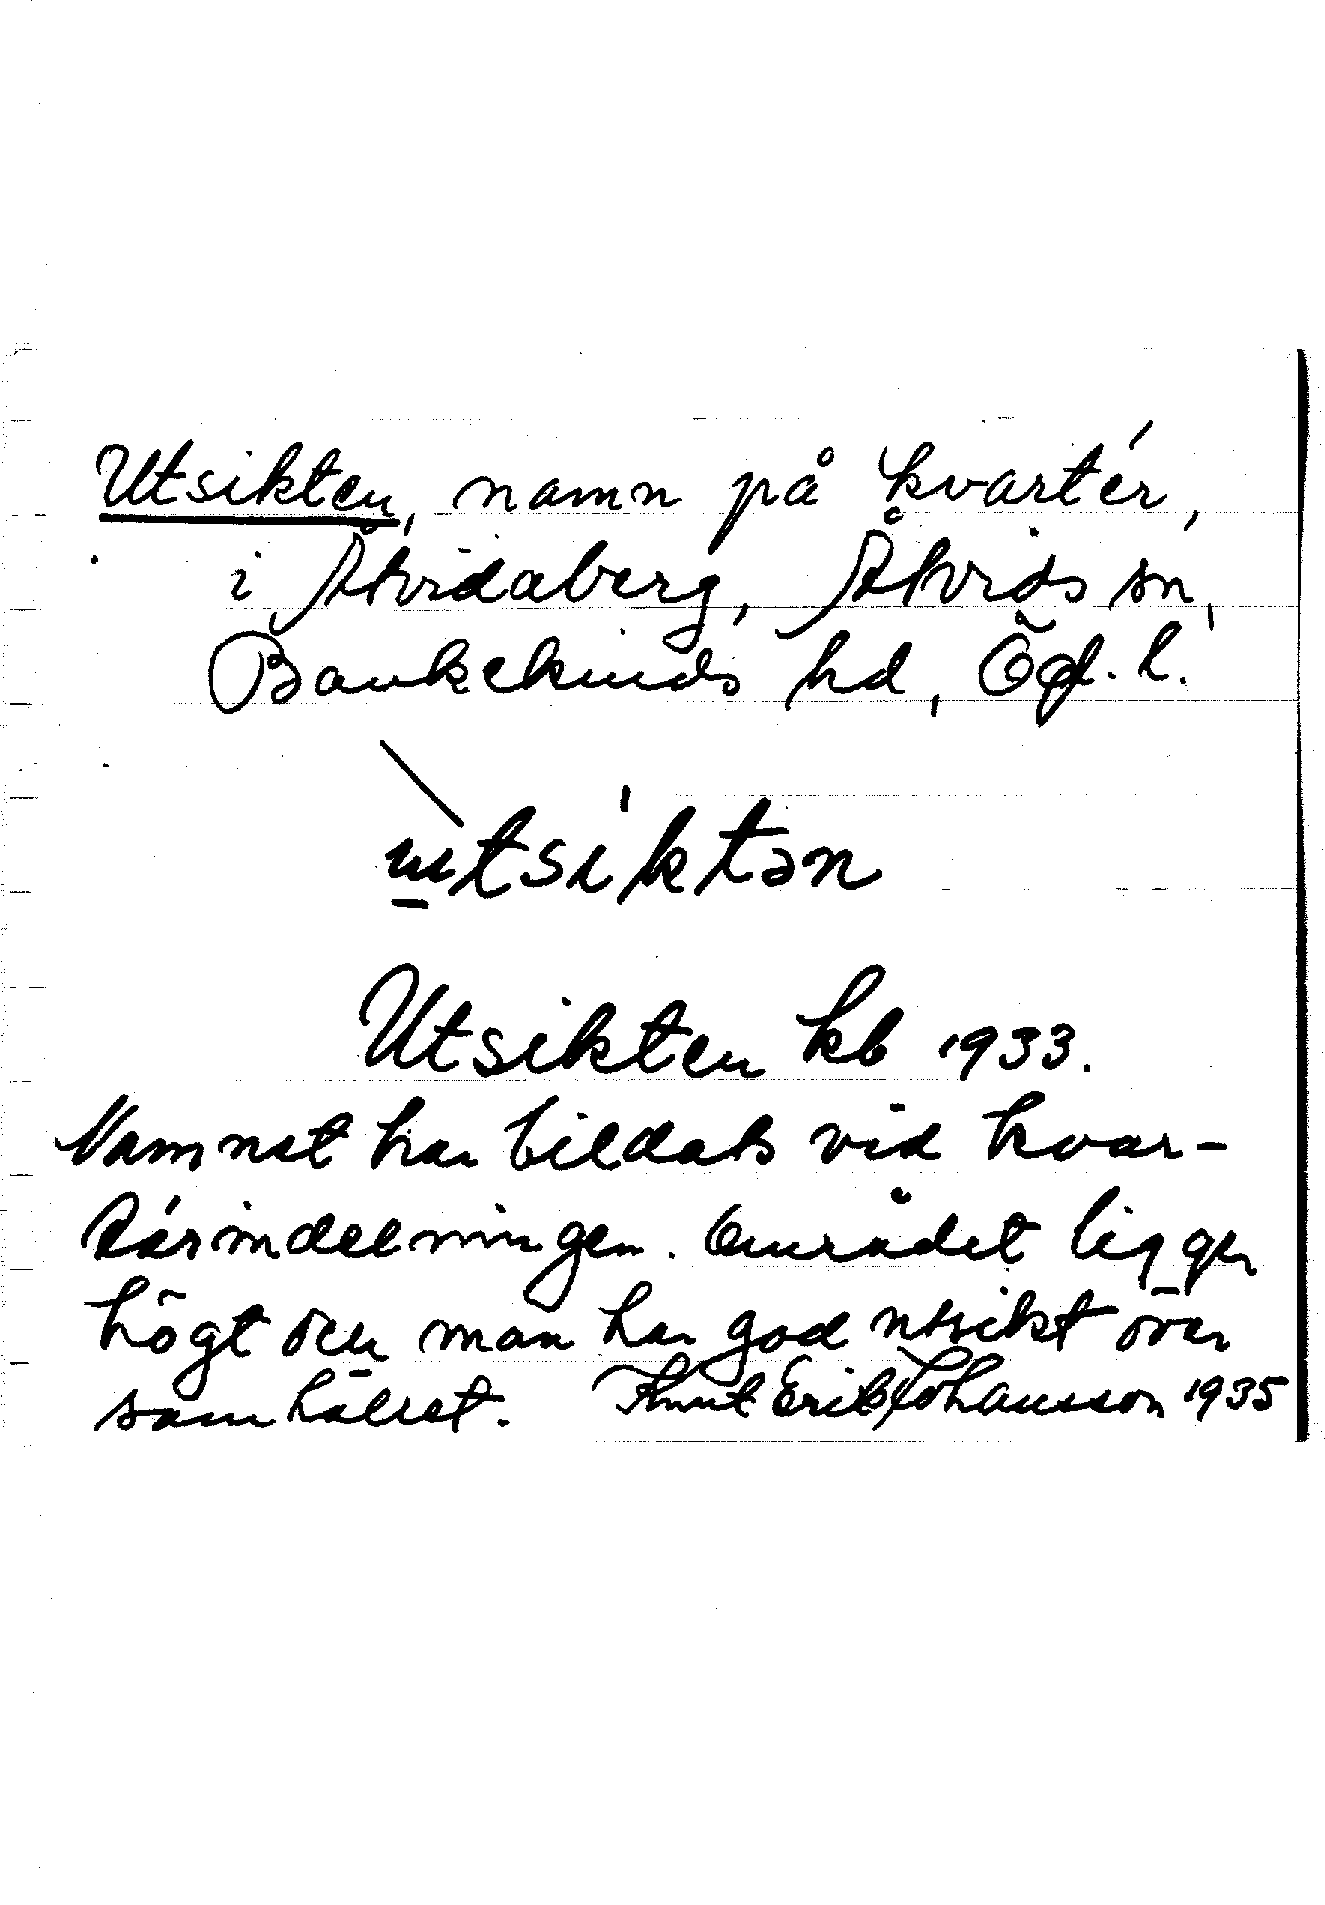 Utsikten, namn på kvartér,
i Åtvidaberg, Åtvids sn,
Bankekinds hd, Ögl. l.
ùtsiktən
Utsikten kb 1933.
Namnet har bildats vid kvar-
térindelningen. Området ligger
högt och man har god utsikt över
samhället. Knut Erik Johansson 1935